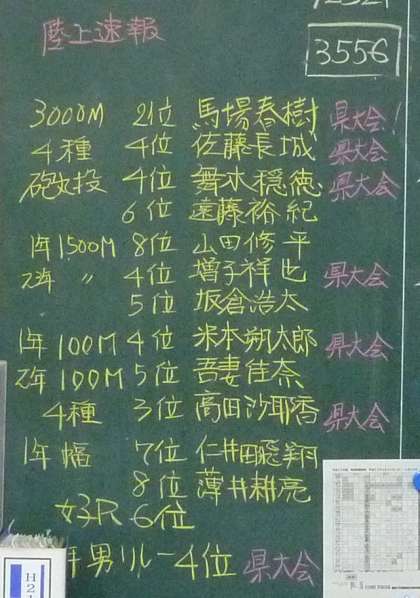 陸上速報
3556
3000M 2位 馬場春樹 県大会!
4種 4位 佐藤長城 県大会
砲丸投 4位 舞木穏徳 県大会
6位 遠藤裕紀
1年1500M 8位 山田修平
2年 〃 4位 増子祥也 県大会
5位 坂倉浩太
1年100M 4位 米本朔太郎 県大会
2年100M 5位 吾妻佳奈
4種 3位 高田沙耶香 県大会
1年 幅 7位 仁井田飛翔
8位 薄井耕亮
女子R 6位
年男リレー4位 県大会